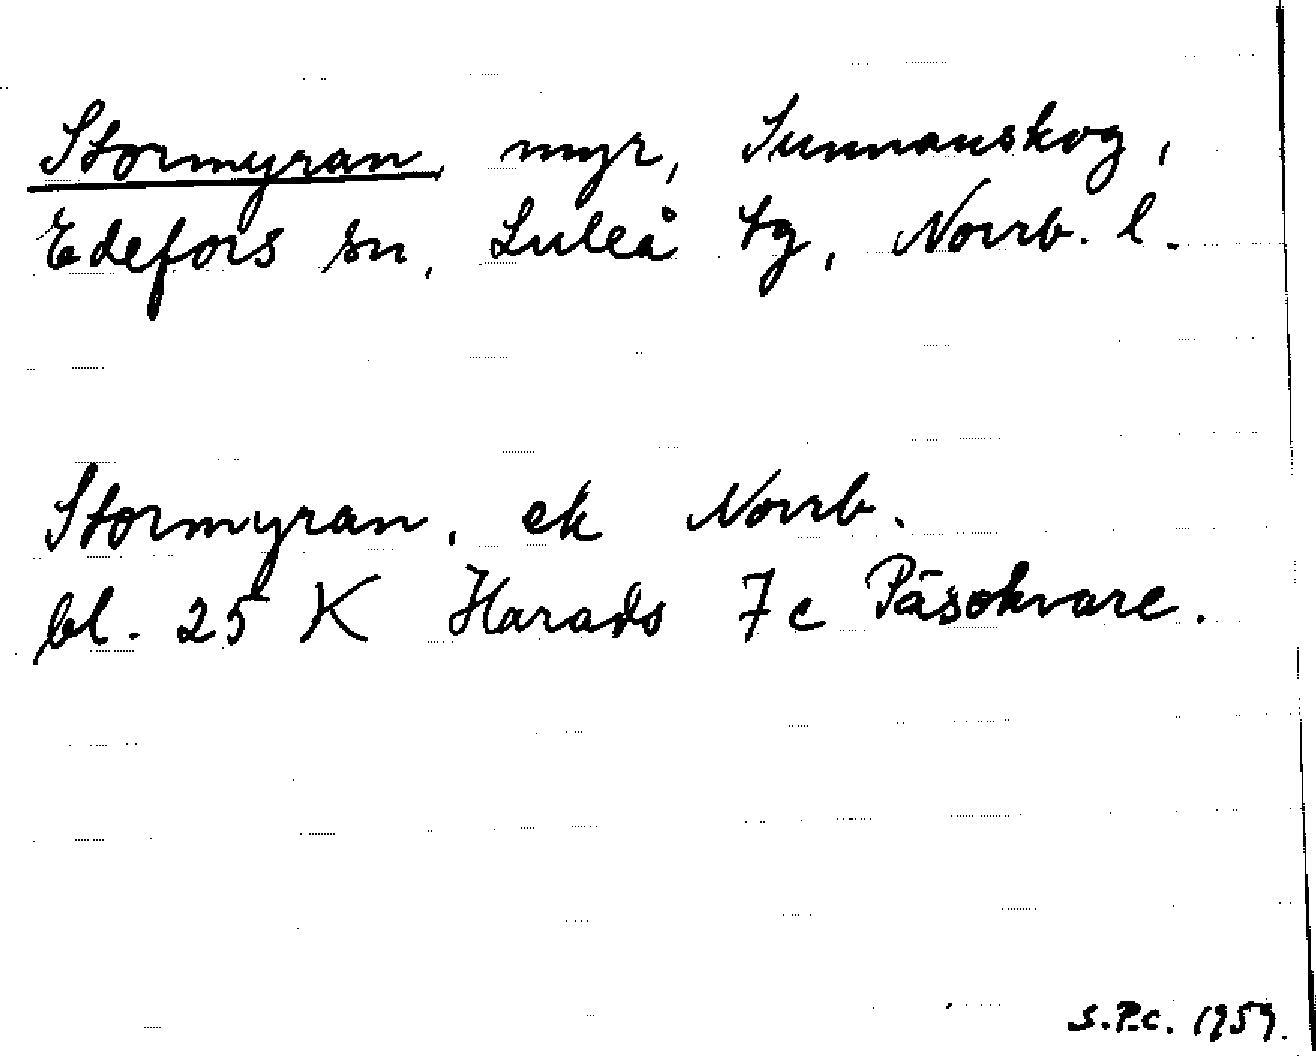 Stormyran, myr, Sunnanskog,
Edefors sn, Luleå tg, Norrb. l.
Stormyran, ek Norrb.
bl. 25 K Harads 7c Päsokvare.
S.P.C. 1959.